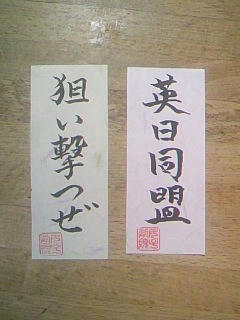 英日同盟
狙い撃つぜ